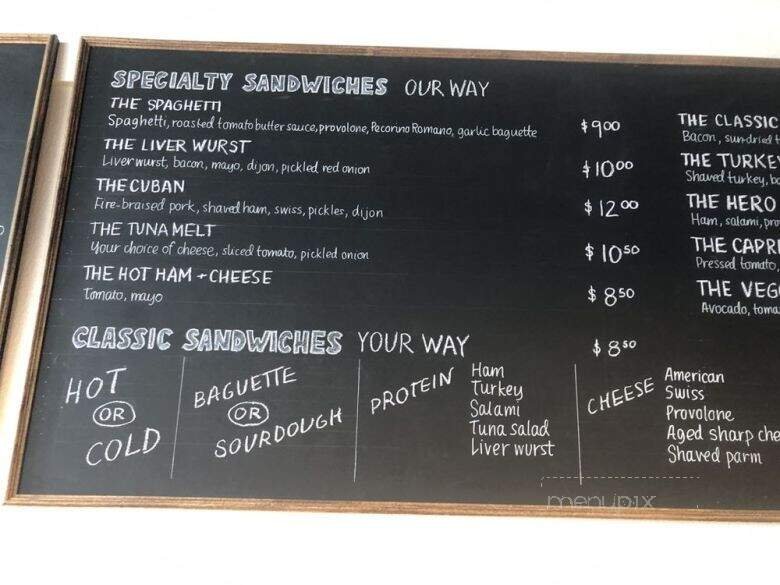 SPECIALTY SANDWICHES OUR WAY
THE SPAGHETTI
Spaghetti, roasted tomato butter sauce, provolone, Pecorino Romano, garlic baguette $9.00
THE LIVER WURST
Liver wurst, bacon, mayo, dijon, pickled red onion $10.00
THE CUBAN
Fire-braised pork, shaved ham, swiss, pickles, dijon $12.00
THE TUNA MELT
Your choice of cheese, sliced tomato, pickled onion $10.50
THE HOT HAM + CHEESE
Tomato, mayo $8.50
THE CLASSIC
Bacon, sun-dried
THE TURKEY
Shaved turkey,
THE HERO
Ham, salami,
THE
Pressed tomato,
THE
Avocado,
CLASSIC SANDWICHES YOUR WAY $8.50
HOT
OR
COLD
BAGUETTE
OR
SOURDOUGH
PROTEIN
Ham
Turkey
Salami
Tuna salad
Liver wurst
CHEESE
American
Swiss
Provolone
Aged sharp
Shaved parm
menupix